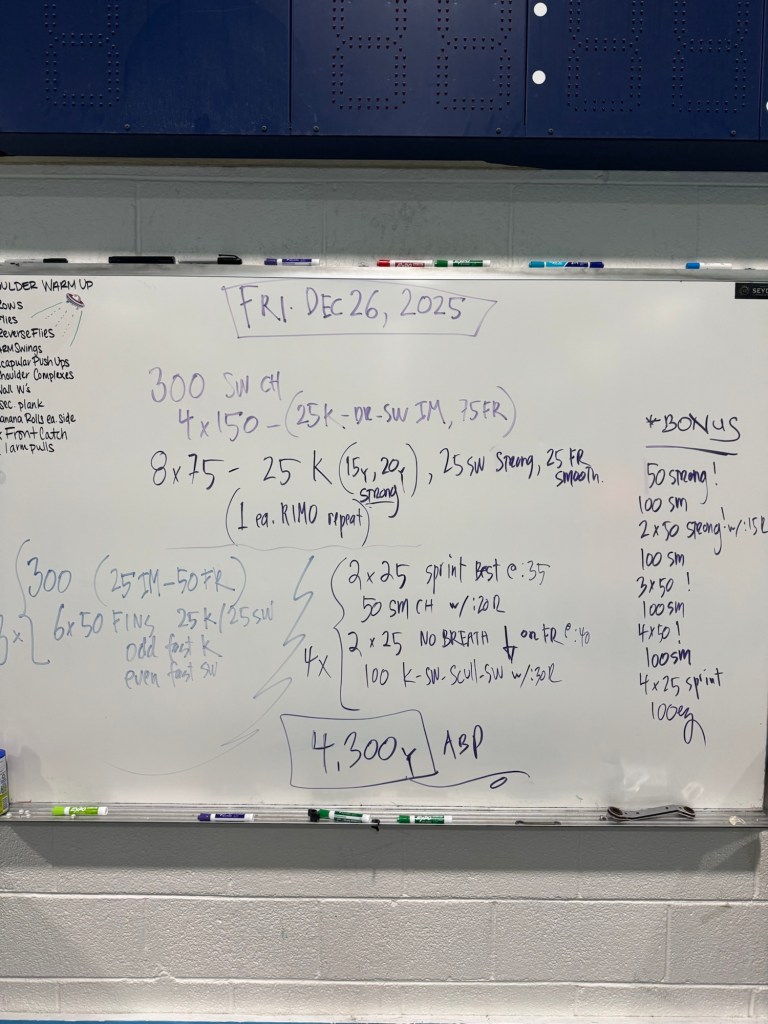 FRI. DEC 26, 2025
SEYD
OULDER WARM UP
ows
Flies
Reverse Flies
ARM Swings
capular Push Ups
houlder Complexes
Wall W's
sec. plank
anana Rolls ea. side
Front Catch
1 arm pulls
300 SW CH
4x150 - (25K-DR-SW IM, 75FR)
8x75 - 25 K (15y, 20y), 25 SW Strong, 25 FR
strong
smooth.
(1 ea. RIMO repeat)
300 (25IM-50FR)
3x
6x50 FINS 25K/25SW
odd fast K
even fast SW
2x25 sprint Best @ :35
50 SM CH w/:20R
4x
2x25 NO BREATH ↓ on FR @ :40
100 K-SW-Scull-SW w/:30R
4,300y ABP
*BONUS
50 strong!
100 sm
2x50 strong! w/:15R
100 sm
3x50 !
100sm
4x50 !
100sm
4x25 sprint
100ez